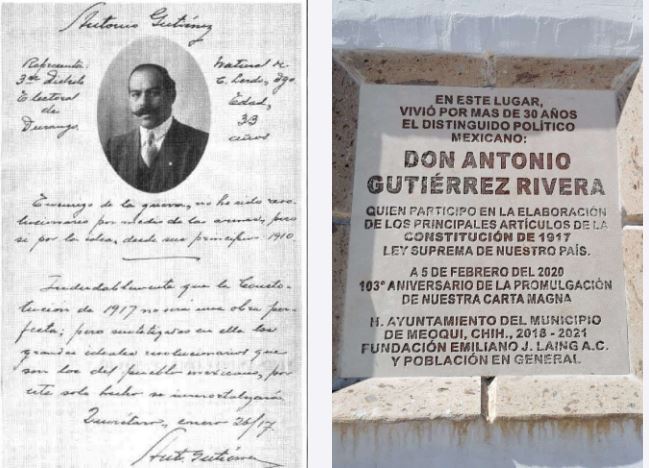 Antonio Gutiérrez
Representa:
3er distrito
Electoral
de
Durango.
Natural de
C. Lerdo, Dgo.
Edad,
33
años
Enemigo de la guerra, no he sido revo-
lucionario por medio de las armas, pero
si por la idea, desde sus principios 1910
Indudablemente que la Consti-
tución de 1917 no será una obra per-
fecta; pero sintetizados en ella los
grandes ideales revolucionarios que
son los del pueblo mexicano, por
este solo hecho se inmortalizará.
Querétaro, enero 26/17
Ant. Gutiérrez
EN ESTE LUGAR,
VIVIÓ POR MAS DE 30 AÑOS
EL DISTINGUIDO POLÍTICO
MEXICANO:
DON ANTONIO
GUTIÉRREZ RIVERA
QUIEN PARTICIPO EN LA ELABORACIÓN
DE LOS PRINCIPALES ARTÍCULOS DE LA
CONSTITUCIÓN DE 1917
LEY SUPREMA DE NUESTRO PAÍS.
A 5 DE FEBRERO DEL 2020
103° ANIVERSARIO DE LA PROMULGACIÓN
DE NUESTRA CARTA MAGNA
H. AYUNTAMIENTO DEL MUNICIPIO
DE MEOQUI, CHIH., 2018 - 2021
FUNDACIÓN EMILIANO J. LAING A.C.
Y POBLACIÓN EN GENERAL.